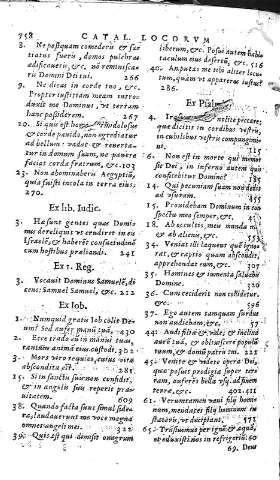 758 CATAL. LOCORVM
3. Ne postquam comederis & sa-
tiatus fueris, domos pulchras
ædificaueris, &c. nō reminisca-
ris Domini Dei tui. 266
9. Ne dicas in corde tuo, &c.
Propter iustitiam meam intro-
duxit me Dominus, vt terram
hanc possiderem. 267
20. Si quis est homo formidolosus
& corde pauido, non egrediatur
ad bellum: vadat & reuerta-
tur in domum suam, ne pauere
faciat corda fratrum, &c. 107
23. Non abominaberis Aegyptiū,
quia fuisti incola in terra eius.
270.
Ex lib. Iudic.
3. Hæ sunt gentes quas Domi-
nus dereliquit vt erudiret in eis
Israelē, & haberēt consuetudinē
cum hostibus præliandi. 241
Ex 1. Reg.
3. Vocauit Dominus Samuelē, di-
cens: Samuel Samuel, &c. 212
Ex Iob.
1. Nunquid gratis Iob colit De-
um? Sed aufer manū tuā, 430
2. Ecce tradō eū in manu tua,
tantùm animā eius custodi. 302
3. Mors viro requies, cuius via
abscondita est. 281
15. Si in sanctis suis nemo confidit,
& in angelis suis reperit pra-
uitatem. 609
38. Quando facta sunt simul side-
ra, laudauerunt me voce magna
omnes angeli mei.
39. Quis est qui dimisit onagrum
liberum, &c. Posuit autem habi-
taculum eius desertū, &c. 516
40. An putas me tibi aliter locu-
tum, quàm vt appareas iustus?
286.
Ex Psalm.
4. Irascimini & nolite peccare;
que dicitis in cordibus vestris,
in cubilibus vestris compungi-
mini.
6. Non est in morte qui memor
sit Dei, in inferno autem quis
confitebitur Domino?
14. Qui pecuniam suam non dedit
ad vsuram.
15. Prouidebam Dominum in con-
spectu meo semper, &c.
18. Ab occultis meis munda me
& ab alienis, &c.
34. Veniat illi laqueus quē igno-
rat, & captio quam abscondit,
apprehendat eum, &c.
35. Homines & iumenta saluabis
Domine. 320
36. Cum ceciderit non collidetur,
&c.
37. Ego autem tamquam surdus
non audiebam, &c.
44. Audi filia & vide, & inclina
aurē tuā, & obliuiscere populū
tuum, & domū patris tui. 221
45. Venite & videte opera Dei,
quæ posuit prodigia super ter-
ram, auferēs bella vsq. ad finem
terræ. 402.441
61. Veruntamen vani filij homi-
num, mendaces filij hominum in
stateris, vt decipiant. 573
65. Trāsiuimus per ignē & aquā,
& eduxisti nos in refrigeriū. 60
69. Deus